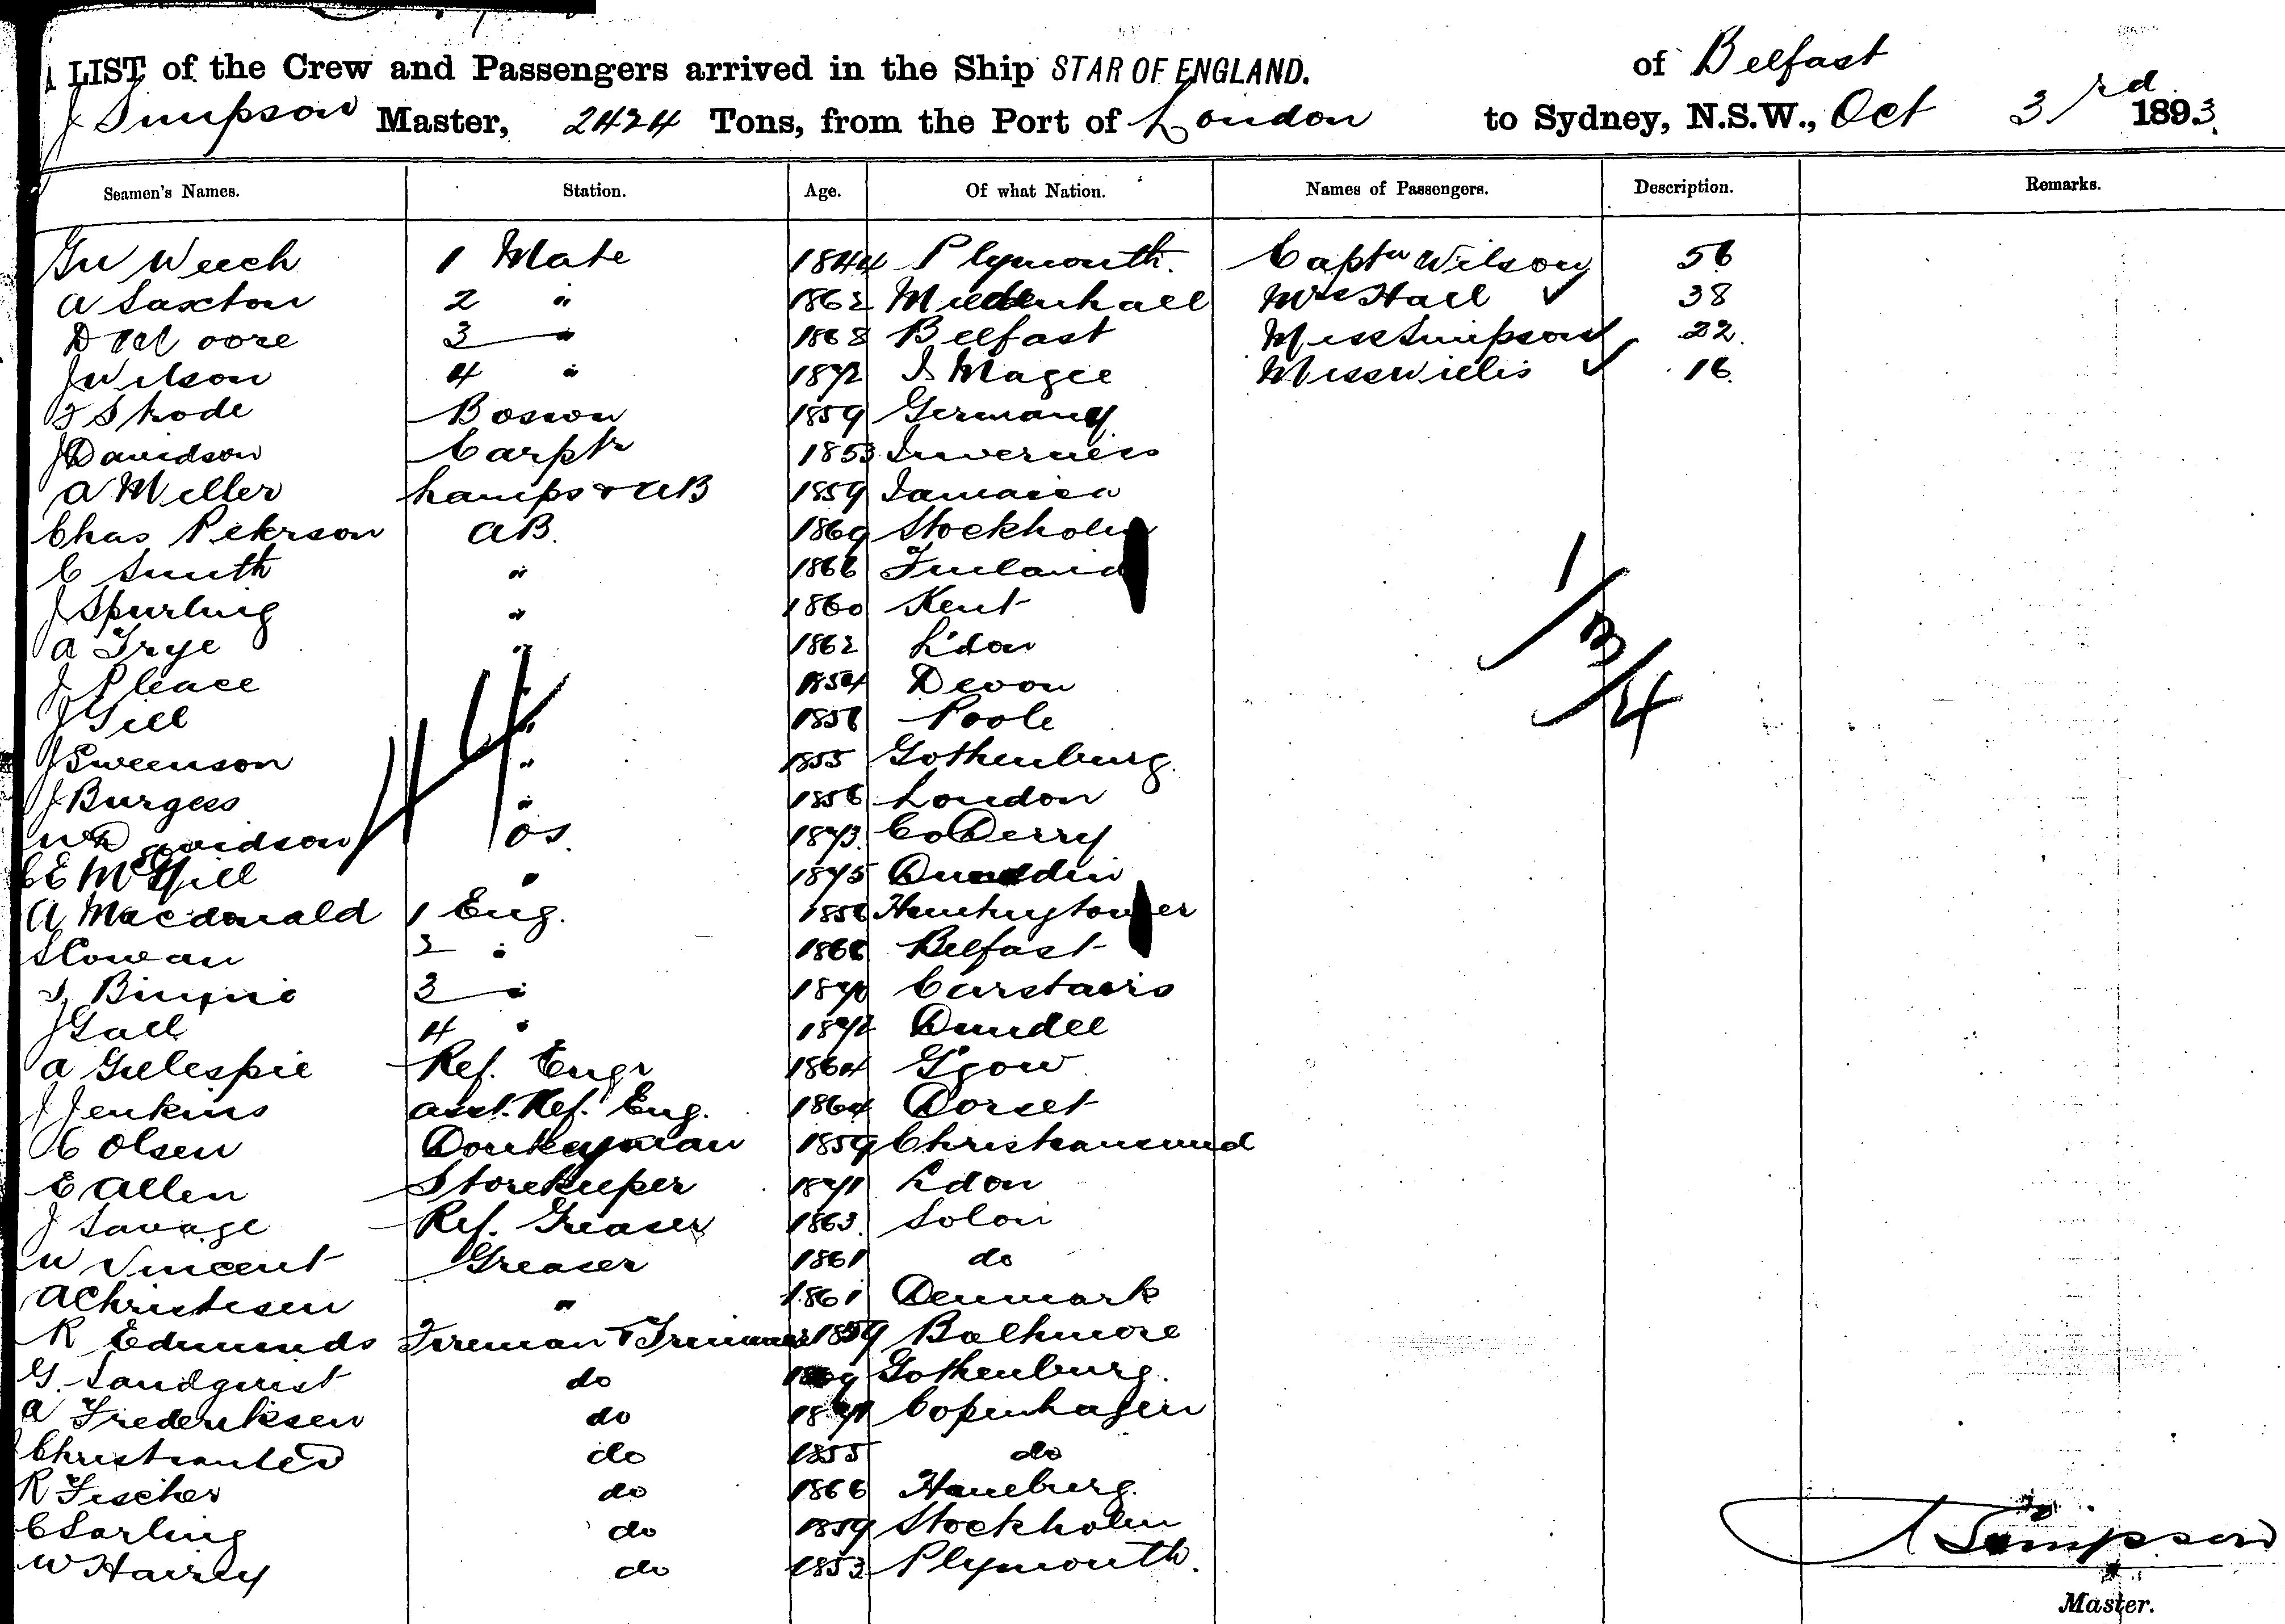 LIST of the Crew and Passengers arrived in the Ship STAR OF ENGLAND. of Belfast
J Simpson Master, 2424 Tons, from the Port of London to Sydney, N.S.W., Oct 3rd 1893.
Seamen's Names. Station. Age. Of what Nation. Names of Passengers. Description. Remarks.
Weech 1 Mate 1844 Plymouth. Captn Wilson 56
A Saxton 2 " 1862 Mildenhall Mrs Hall 38
D Moore 3 " 1868 Belfast Miss Simpson 22.
J Wilson 4 " 1872 I. Magee Miss Willis 16.
Boswn 1859 Germany
J Davidson Carptr 1853 Inverness
A Miller Lamps & AB 1859 Jamaica
Chas Peterson AB. 1869 Stockholm
C Smith " 1866 Finland
J Spurling " 1860 Kent
A Frye " 1862 L'don
J Pleace " 1854 Devon
J Gill " 1856 Poole
J Sweenson " 1855 Gothenburg.
J Burgess " 1856 London
W Davidson OS. 1873. Co Derry
C E McGill " 1875 Dunedin
A Macdonald 1 Eng. 1856
S Cowan 2 " 1866 Belfast
Binnie 3 " 1870 Carstairs
J Gall 4 " 1872 Dundee
A Gillespie Ref. Engr 1864 G'gow
J Jenkins asst. Ref. Eng. 1864 Dorset
C Olsen Donkeyman 1859 Christiansund
E Allen Storekeeper 1871 L'don
J Savage Ref. Greaser 1863. Solon
W Vincent Greaser 1861 do
A Christesen " 1861 Denmark
R Edmunds Fireman & Trimmer 1859 Baltimore
G. Sandqvist do Gothenburg.
A Frederiksen do 1871 Copenhagen
do 1855 do
R Fischer do 1866 Hamburg.
C Sarling do 1859 Stockholm
W Hairey do 1853 Plymouth.
J Simpson
Master.